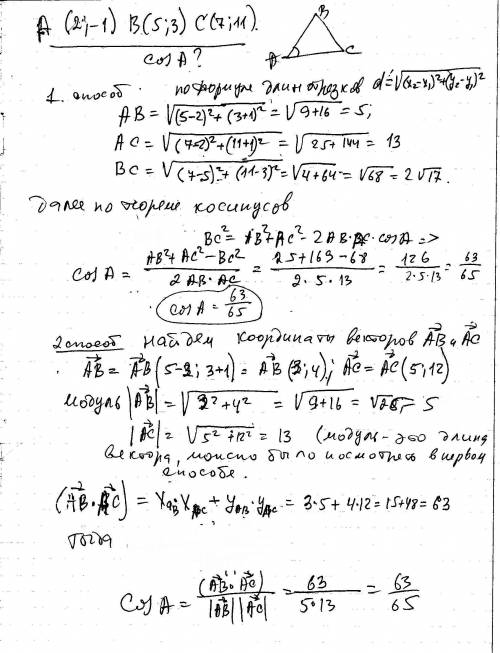 A (2;-1) B(5;3) C(7;11).
cos A?
B
A
C
1. способ по формуле длин отрезков d=√(x₂-x₁)²+(y₂-y₁)²
AB = √(5-2)²+(3+1)² = √9+16 = 5;
AC = √(7-2)²+(11+1)² = √25+144 = 13
BC = √(7-5)²+(11-3)² = √4+64 = √68 = 2√17.
далее по теореме косинусов
BC² = AB²+AC² - 2AB·AC·cosA =>
cosA = (AB²+AC²-BC²)/(2AB·AC) = (25+169-68)/(2·5·13) = 126/(2·5·13) = 63/65
cosA = 63/65
2 способ найдем координаты векторов AB и AC
AB = AB(5-2; 3+1) = AB(3;4); AC = AC(5;12)
модуль |AB| = √3²+4² = √9+16 = √25 = 5
|AC| = √5²+12² = 13 (модуль - это длина
вектора, можно было посмотреть в первом
способе.
(AB·AC) = x_AB·x_AC + y_AB·y_AC = 3·5+4·12 = 15+48 = 63
тогда
cosA = (AB·AC)/(|AB||AC|) = 63/(5·13) = 63/65